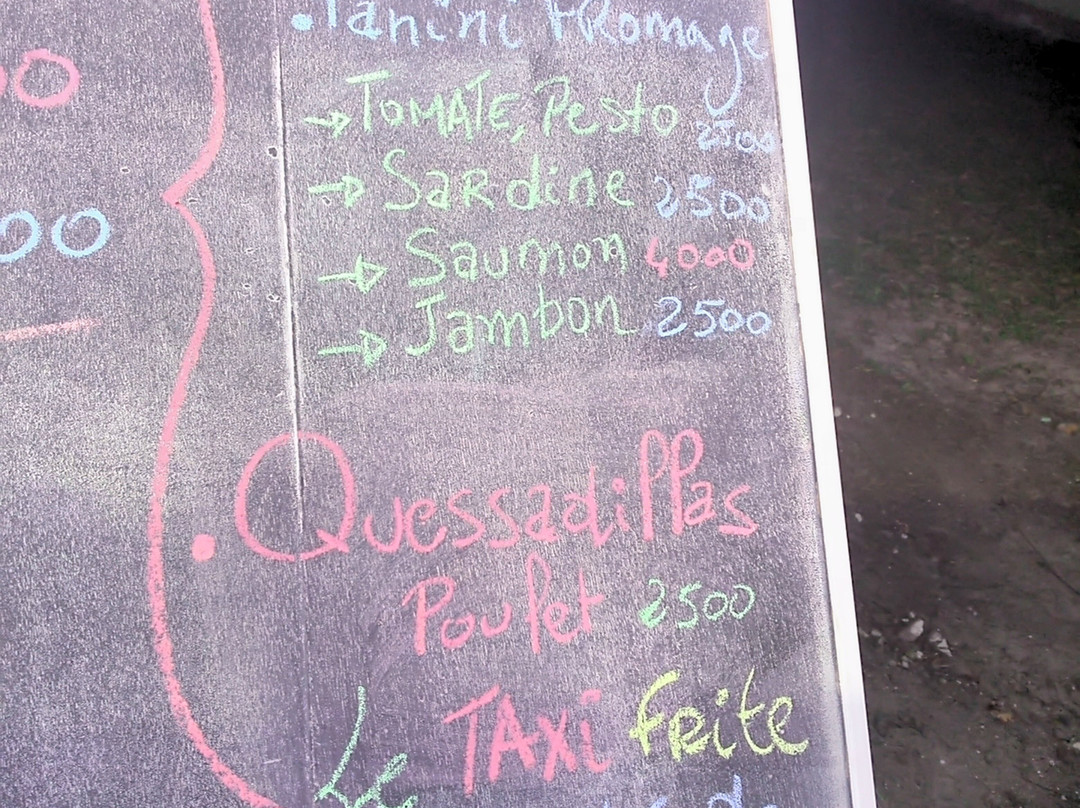 00
.Panini Fromage
→ Tomate, Pesto 2500
→ Sardine 2500
00
→ Saumon 4000
→ Jambon 2500
. Quessadillas
Poulet 2500
TAXi Frite
Le